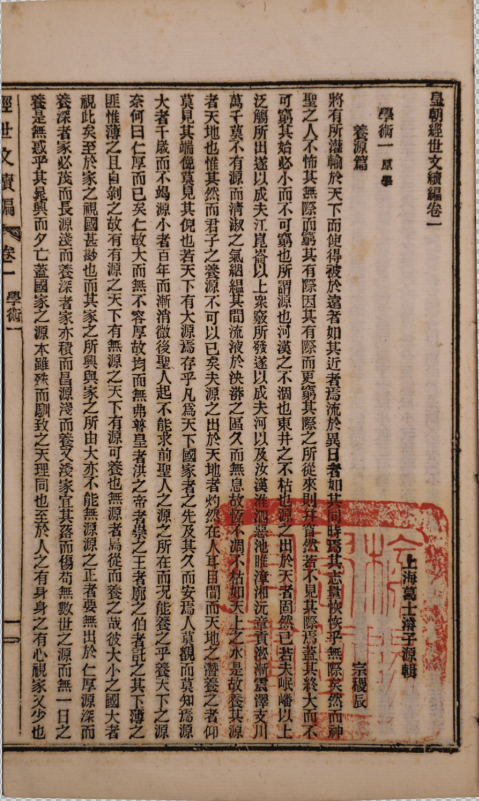 皇朝經世文續編卷一
上海葛士濬子源輯
學術一原學
養源篇
宗稷辰
將有所灌輸於天下而使得被於遠者如其近者焉流於異日者如其同時焉其志量恢恢乎無際矣然而神
聖之人不恃其無際而窮其有際因其有際而更窮其際之所從來則其自然若不見其際焉蓋其終大而不
可窮其始必小而不可窮也所謂源也河漢之不涸也東井之不枯也源之出於天者固然已若夫岷嶓以上
泛觴所出遂以成夫江崑崙以上衆竅所發遂以成夫河以及汝漢淮泗惡池睢漳湘沅章貢淞漸震澤支川
萬千莫不有源而清淑之氣絪縕其間流液於泱漭之區久而無息故恆不涸不枯如天上之水是故養其源
者天地也惟其然而君子之養源不可以已矣夫源之出於天地者灼然在人耳目間而天地之潛養之者仰
莫見其端俛莫見其倪也若天下有大源焉存乎凡爲天下國家者之先及其久而安焉人莫覩而莫知爲源
大者千歲而不竭源小者百年而漸消微後聖人起不能求前聖人之源之所在而況能養之乎養天下之源
奈何曰仁厚而已矣仁故大而無不容厚故均而無弗尊皇者洪之帝者崇之王者廓之伯者託之其下薄之
匪惟薄之且自剝之故有有源之天下有無源之天下有源可養也無源者焉從而養之哉彼大小之國大者
視此矣至於家之視國甚勘也而其家之所興與家之所由大亦不能無源源之正者要無出於仁厚源深而
養深者家必茂而長源淺而養深者家亦積而昌源淺而養又淺家宜其落而傷苟無數世之源而無一日之
養是無惑乎其晁興而夕亡蓋國家之源本雖殊而馴致之天理同也至於人之有身身之有心視家又少也
經世文續編 卷一 學術一
一